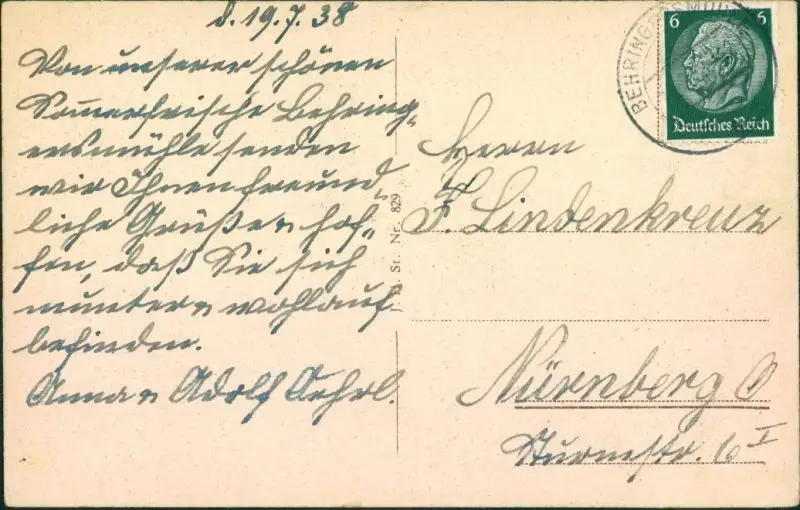 d. 19.7.38
Von unserer schönen
Sommerfrische Behring„
ersmühle senden
wir Ihnen freund„
liche Grüße u hof„
fen, daß Sie sich
munter u wohlauf
befinden.
Anna u Adolf
St. Nr. 829
BEHRINGERSMÜH
6 6
Deutsches Reich
Herrn
F. Lindenkreuz
Nürnberg O
Sturmstr. 6 I